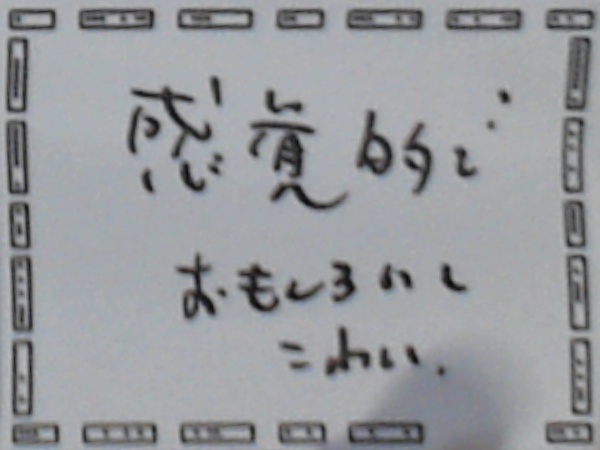 感覚的で
おもしろいし
こわい.